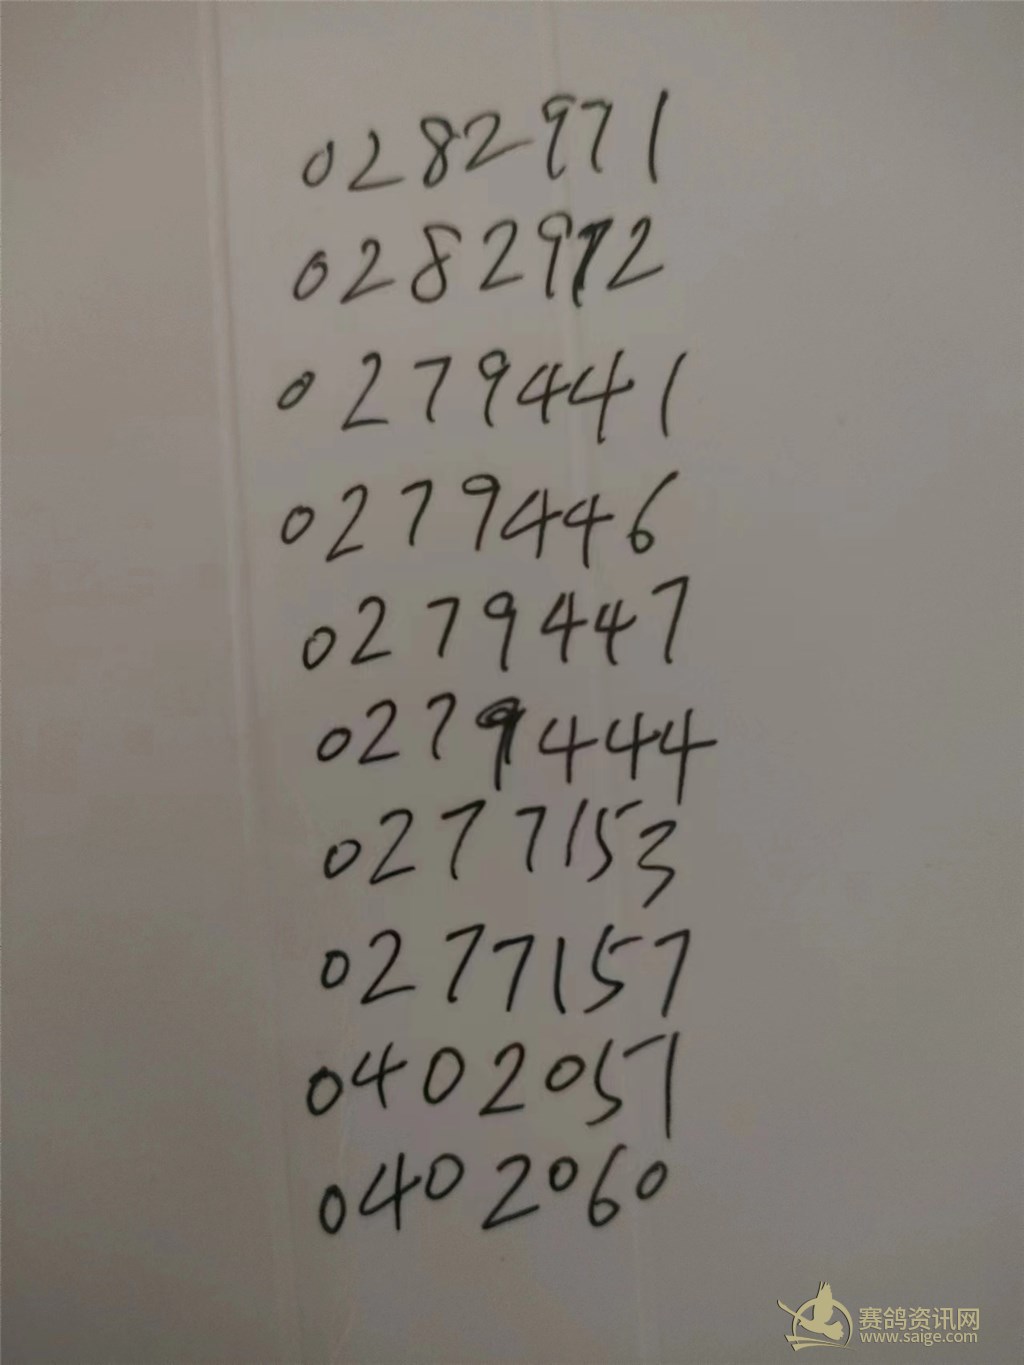 0282971
0282972
0279441
0279446
0279447
0279444
0277153
0277157
0402051
0402060
赛鸽资讯网
www.saige.com